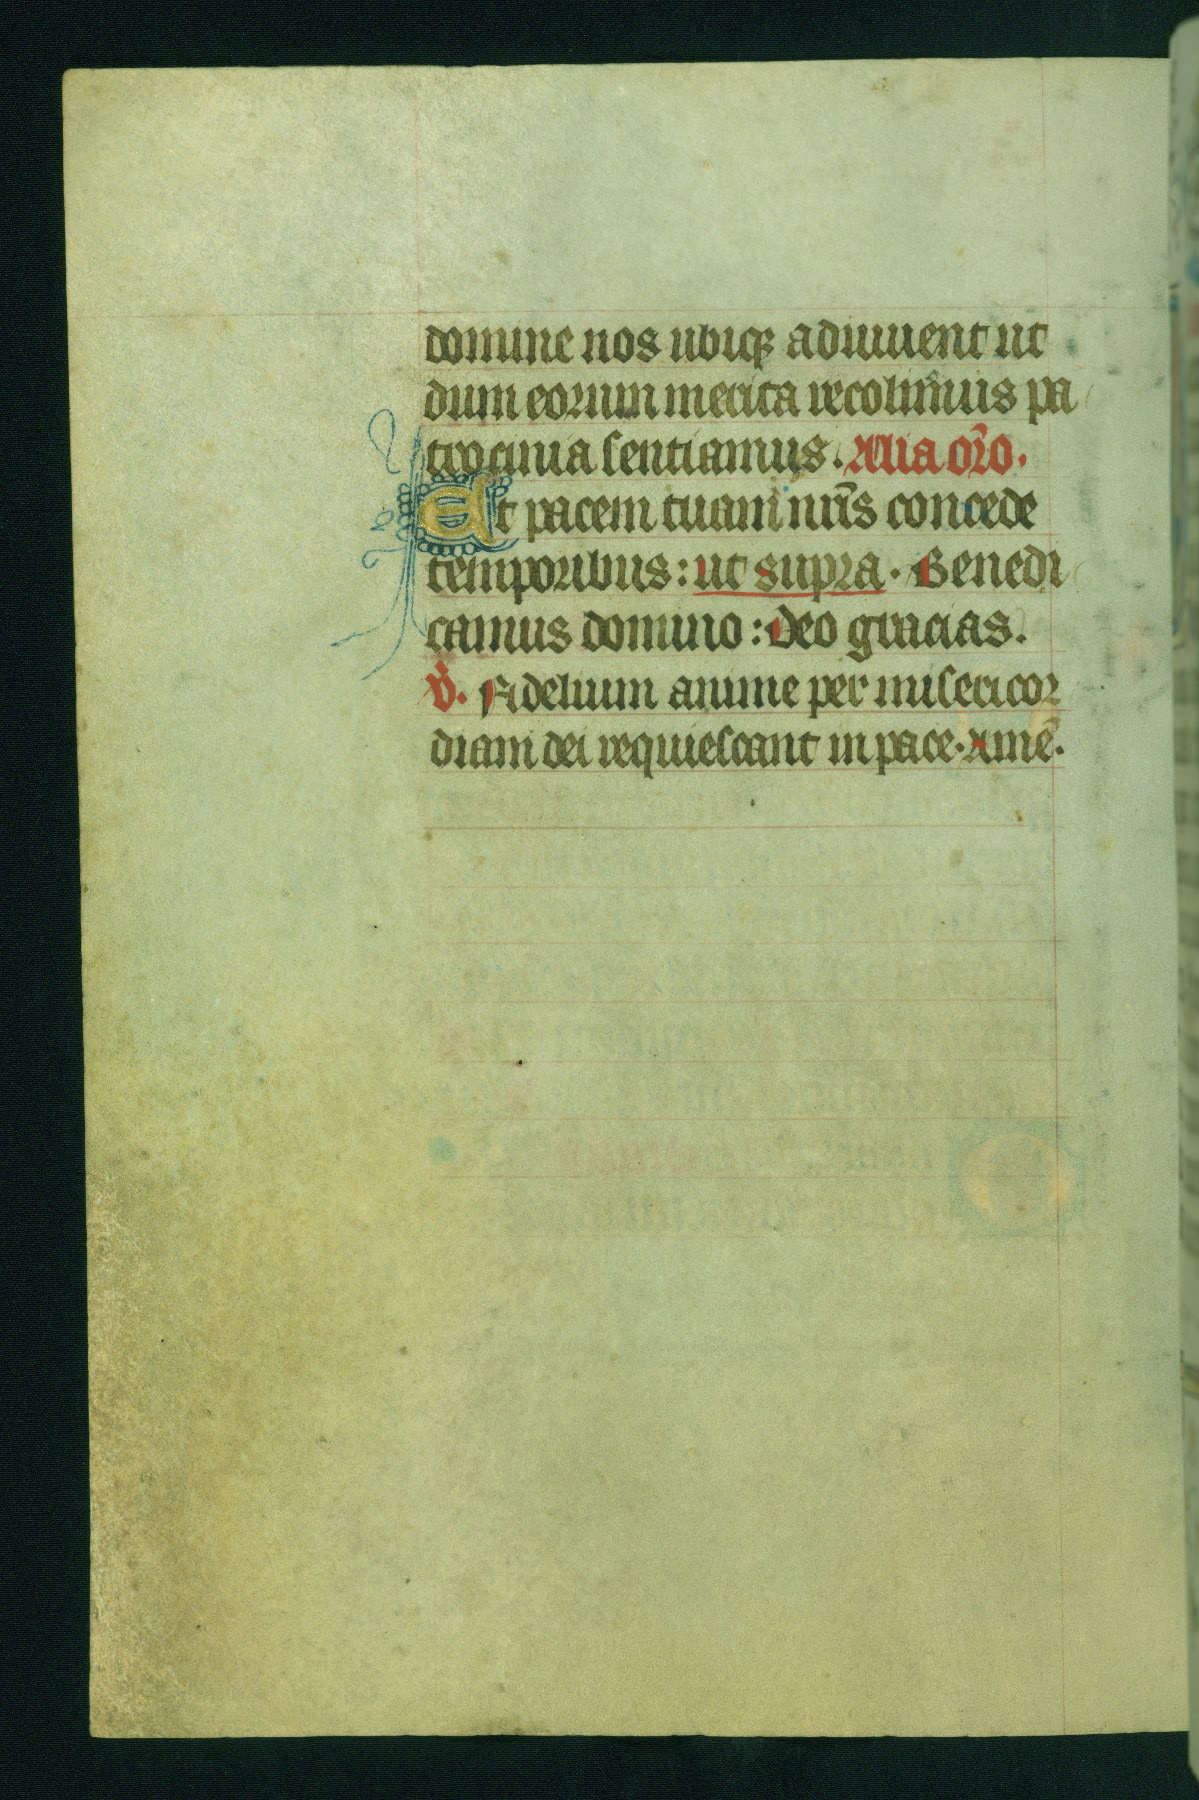 domine nos ubiqꝫ adiuuent ut
dum eorum merita recolimus pa
trocinia sentiamus. Alia or̄o.
Et pacem tuam nr̄is concede
temporibus: ut supra. Benedi
camus domino: Deo gracias.
V̄. Fidelium anime per misericor
diam dei requiescant in pace. Amē.